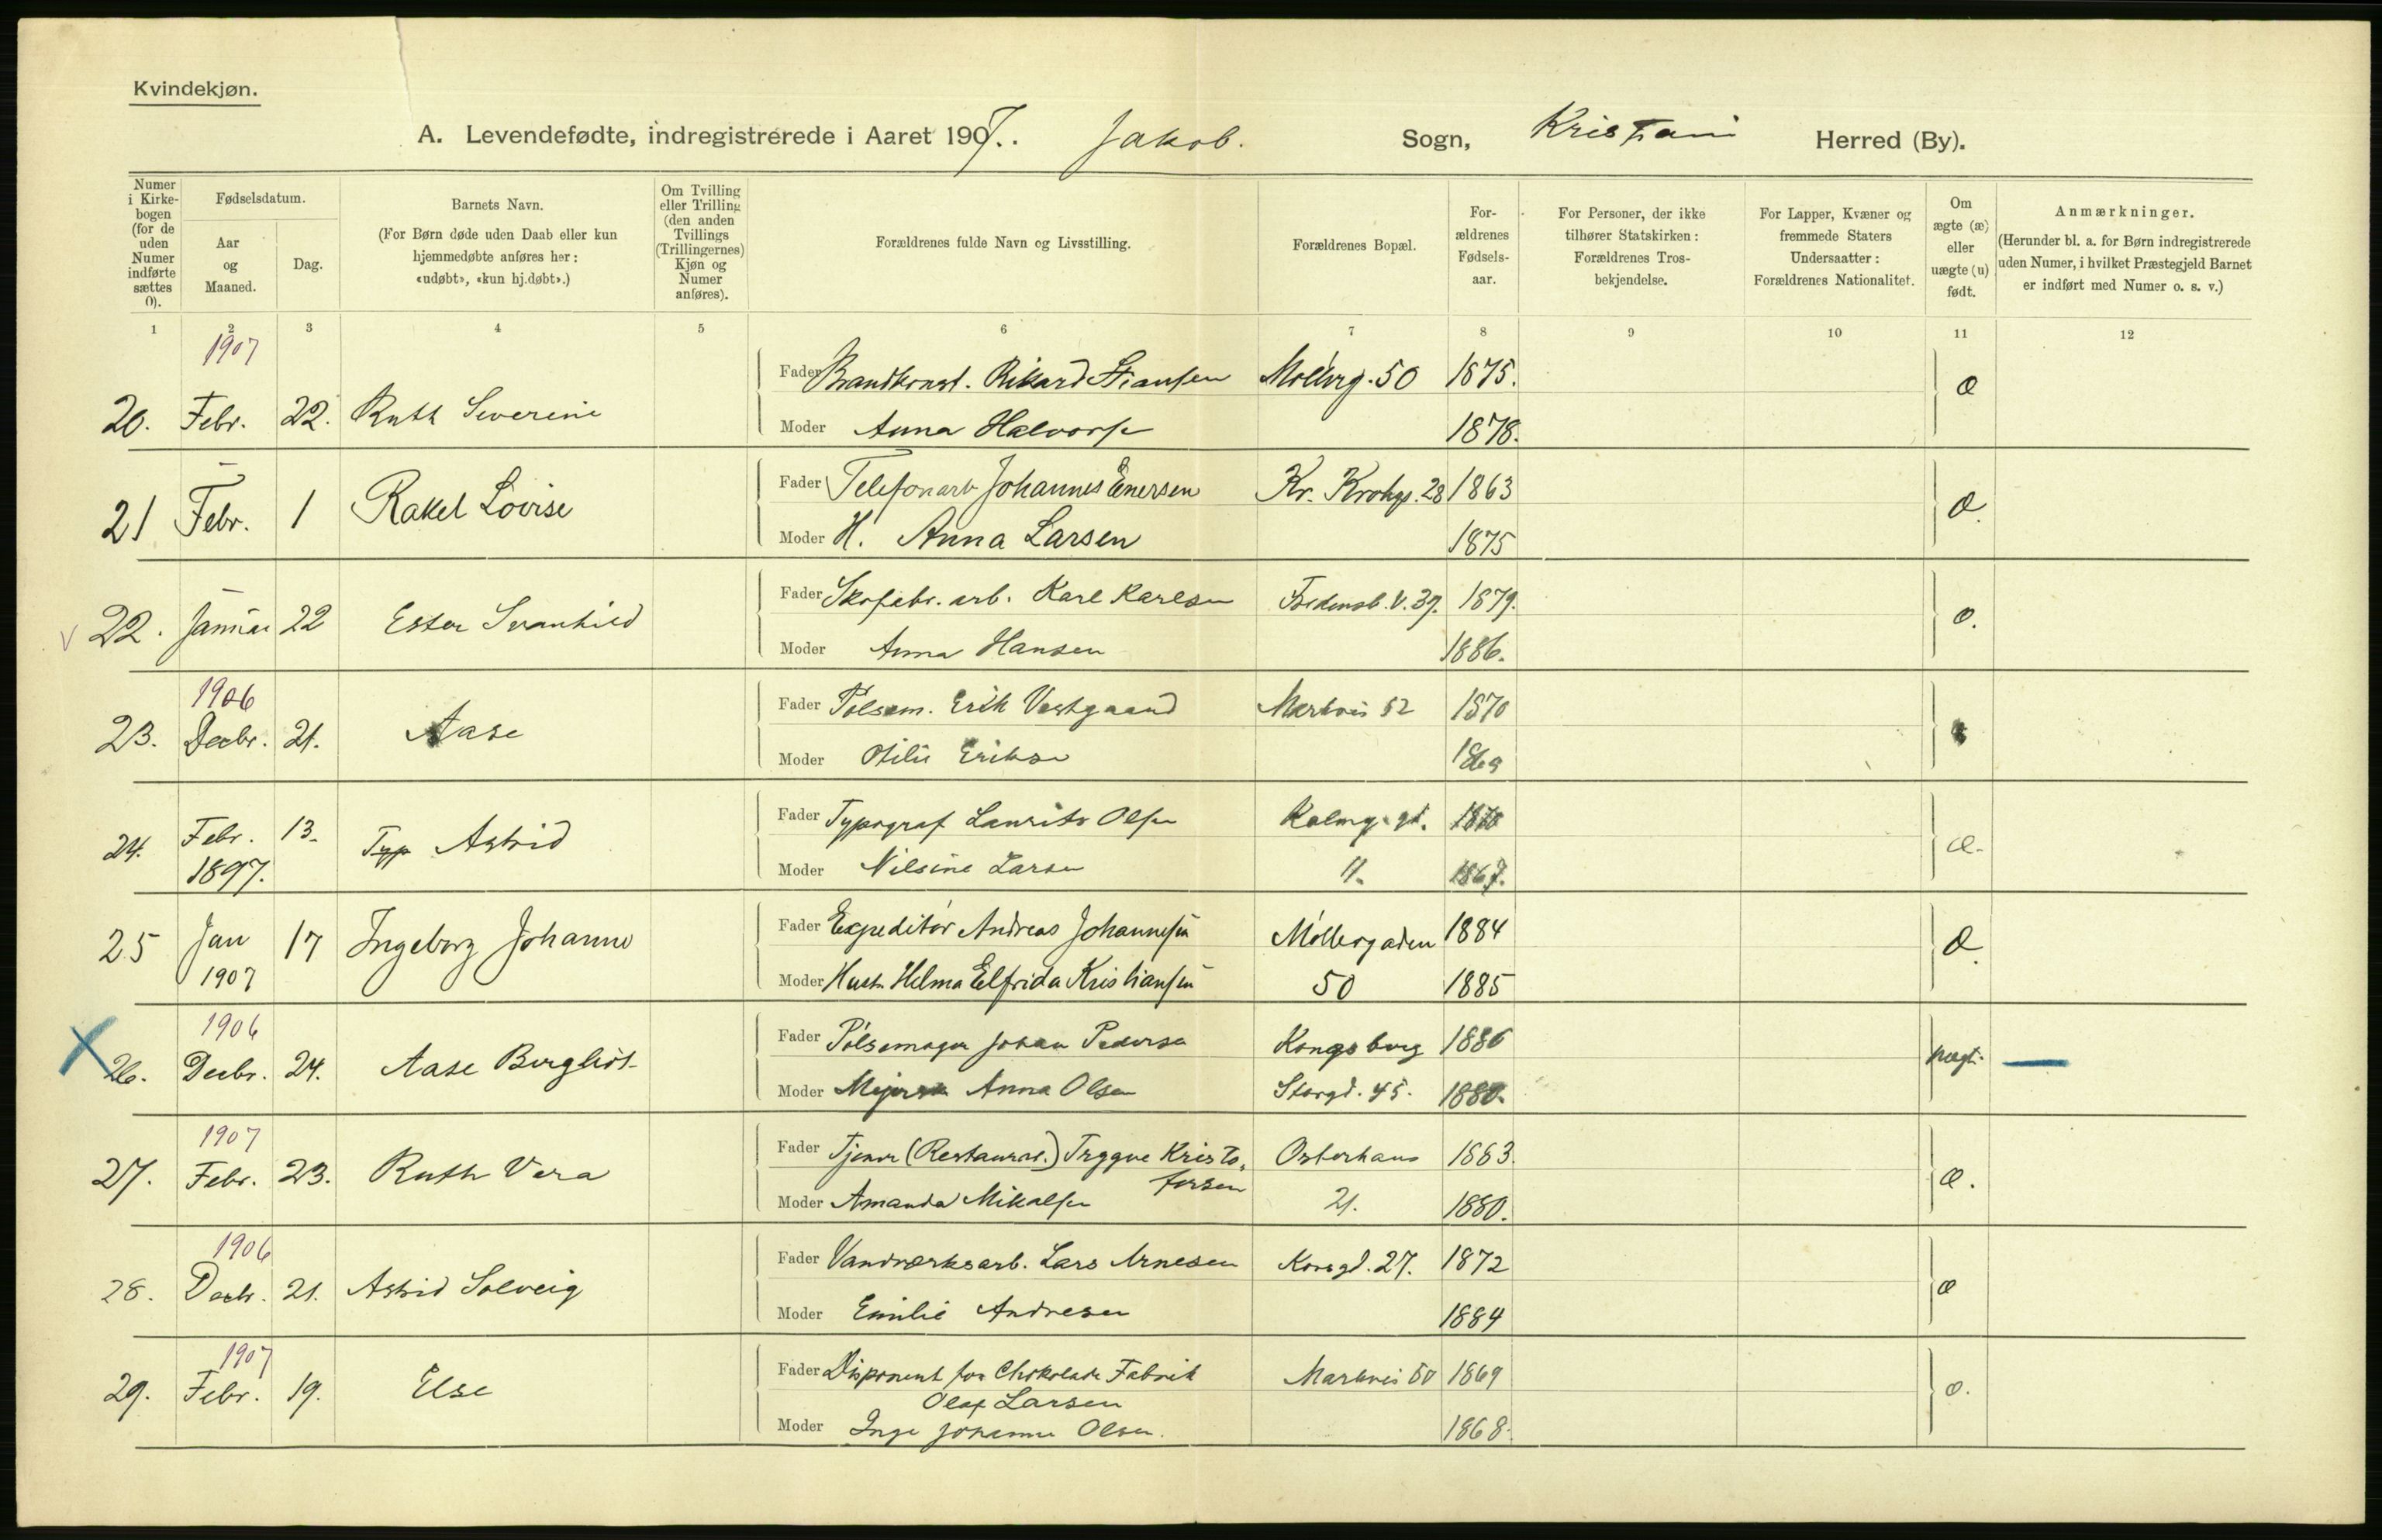 Kvindekjøn.
A. Levendefødte, indregistrerede i Aaret 1907. Jakob. Sogn, Kristiani Herred (By).
Numer i Kirkebogen (for de uden Numer indførte sættes 0).
Fødselsdatum.
Aar og Maaned.
Dag.
Barnets Navn.
(For Børn døde uden Daab eller kun hjemmedøbte anføres her: «udøbt», «kun hj.døbt».)
Om Tvilling eller Trilling (den anden Tvillings (Trillingernes) Kjøn og Numer anføres).
Forældrenes fulde Navn og Livsstilling.
Forældrenes Bopæl.
Forældrenes Fødselsaar.
For Personer, der ikke tilhører Statskirken: Forældrenes Trosbekjendelse.
For Lapper, Kvæner og fremmede Staters Undersaatter: Forældrenes Nationalitet.
Om ægte (æ) eller uægte (u) født.
Anmærkninger.
(Herunder bl. a. for Børn indregistrerede uden Numer, i hvilket Præstegjeld Barnet er indført med Numer o. s. v.)
1 2 3 4 5 6 7 8 9 10 11 12
1907
20. Febr. 22. Ruth Severine Fader Brandkonst. Rikard Stiansen Møllerg. 50 1875. æ
Moder Anna Halvorse 1878.
21 Febr. 1 Rakel Lovise Fader Telefonarb Johannes Enersen Kr. Krohgs. 28 1863 æ.
Moder H. Anna Larsen 1875
22. Januar 22 Ester Svanhild Fader Skofabr. arb. Karl Karlsen V. 39. 1879. æ.
Moder Anna Hansen 1886.
1906
23. Decbr. 21. Aase Fader Pølsem. Erik Vestgaard Markvei 52 1870
Moder Otilie Erikse 1869
24. Febr. 13. Typ Astrid Fader Typograf Laurits Olsen gt. 1870 æ.
1897. Moder Nilsine Larsen 11. 1867.
25 Jan 17 Ingeborg Johanne Fader Expeditør Andreas Johannesen Møllergaden 1884 æ.
1907 Moder Hustr. Helma Elfrida Kristiansen 50 1885
1906
26. Decbr. 24. Aase Bergliot Fader Pølsemager Johan Pedersen Kongsberg 1886 uægt.
Moder Anna Olsen Storgd. 45. 1880.
1907
27. Febr. 23. Ruth Vera Fader Tjener (Restaurat.) Trygve Kristo- Osterhaus 1883. æ.
fersen
Moder Amanda Mikalsen 21. 1880.
1906
28. Decbr. 21. Astrid Solveig Fader Vandværksarb. Lars Arnesen Korsgd. 27. 1872 æ
Moder Emilie Andresen 1884
1907
29. Febr. 19. Else Fader Disponent for Chokolade Fabrik Markvei 50 1869 æ.
Olaf Larsen
Moder Inga Johanne Olsen. 1868.